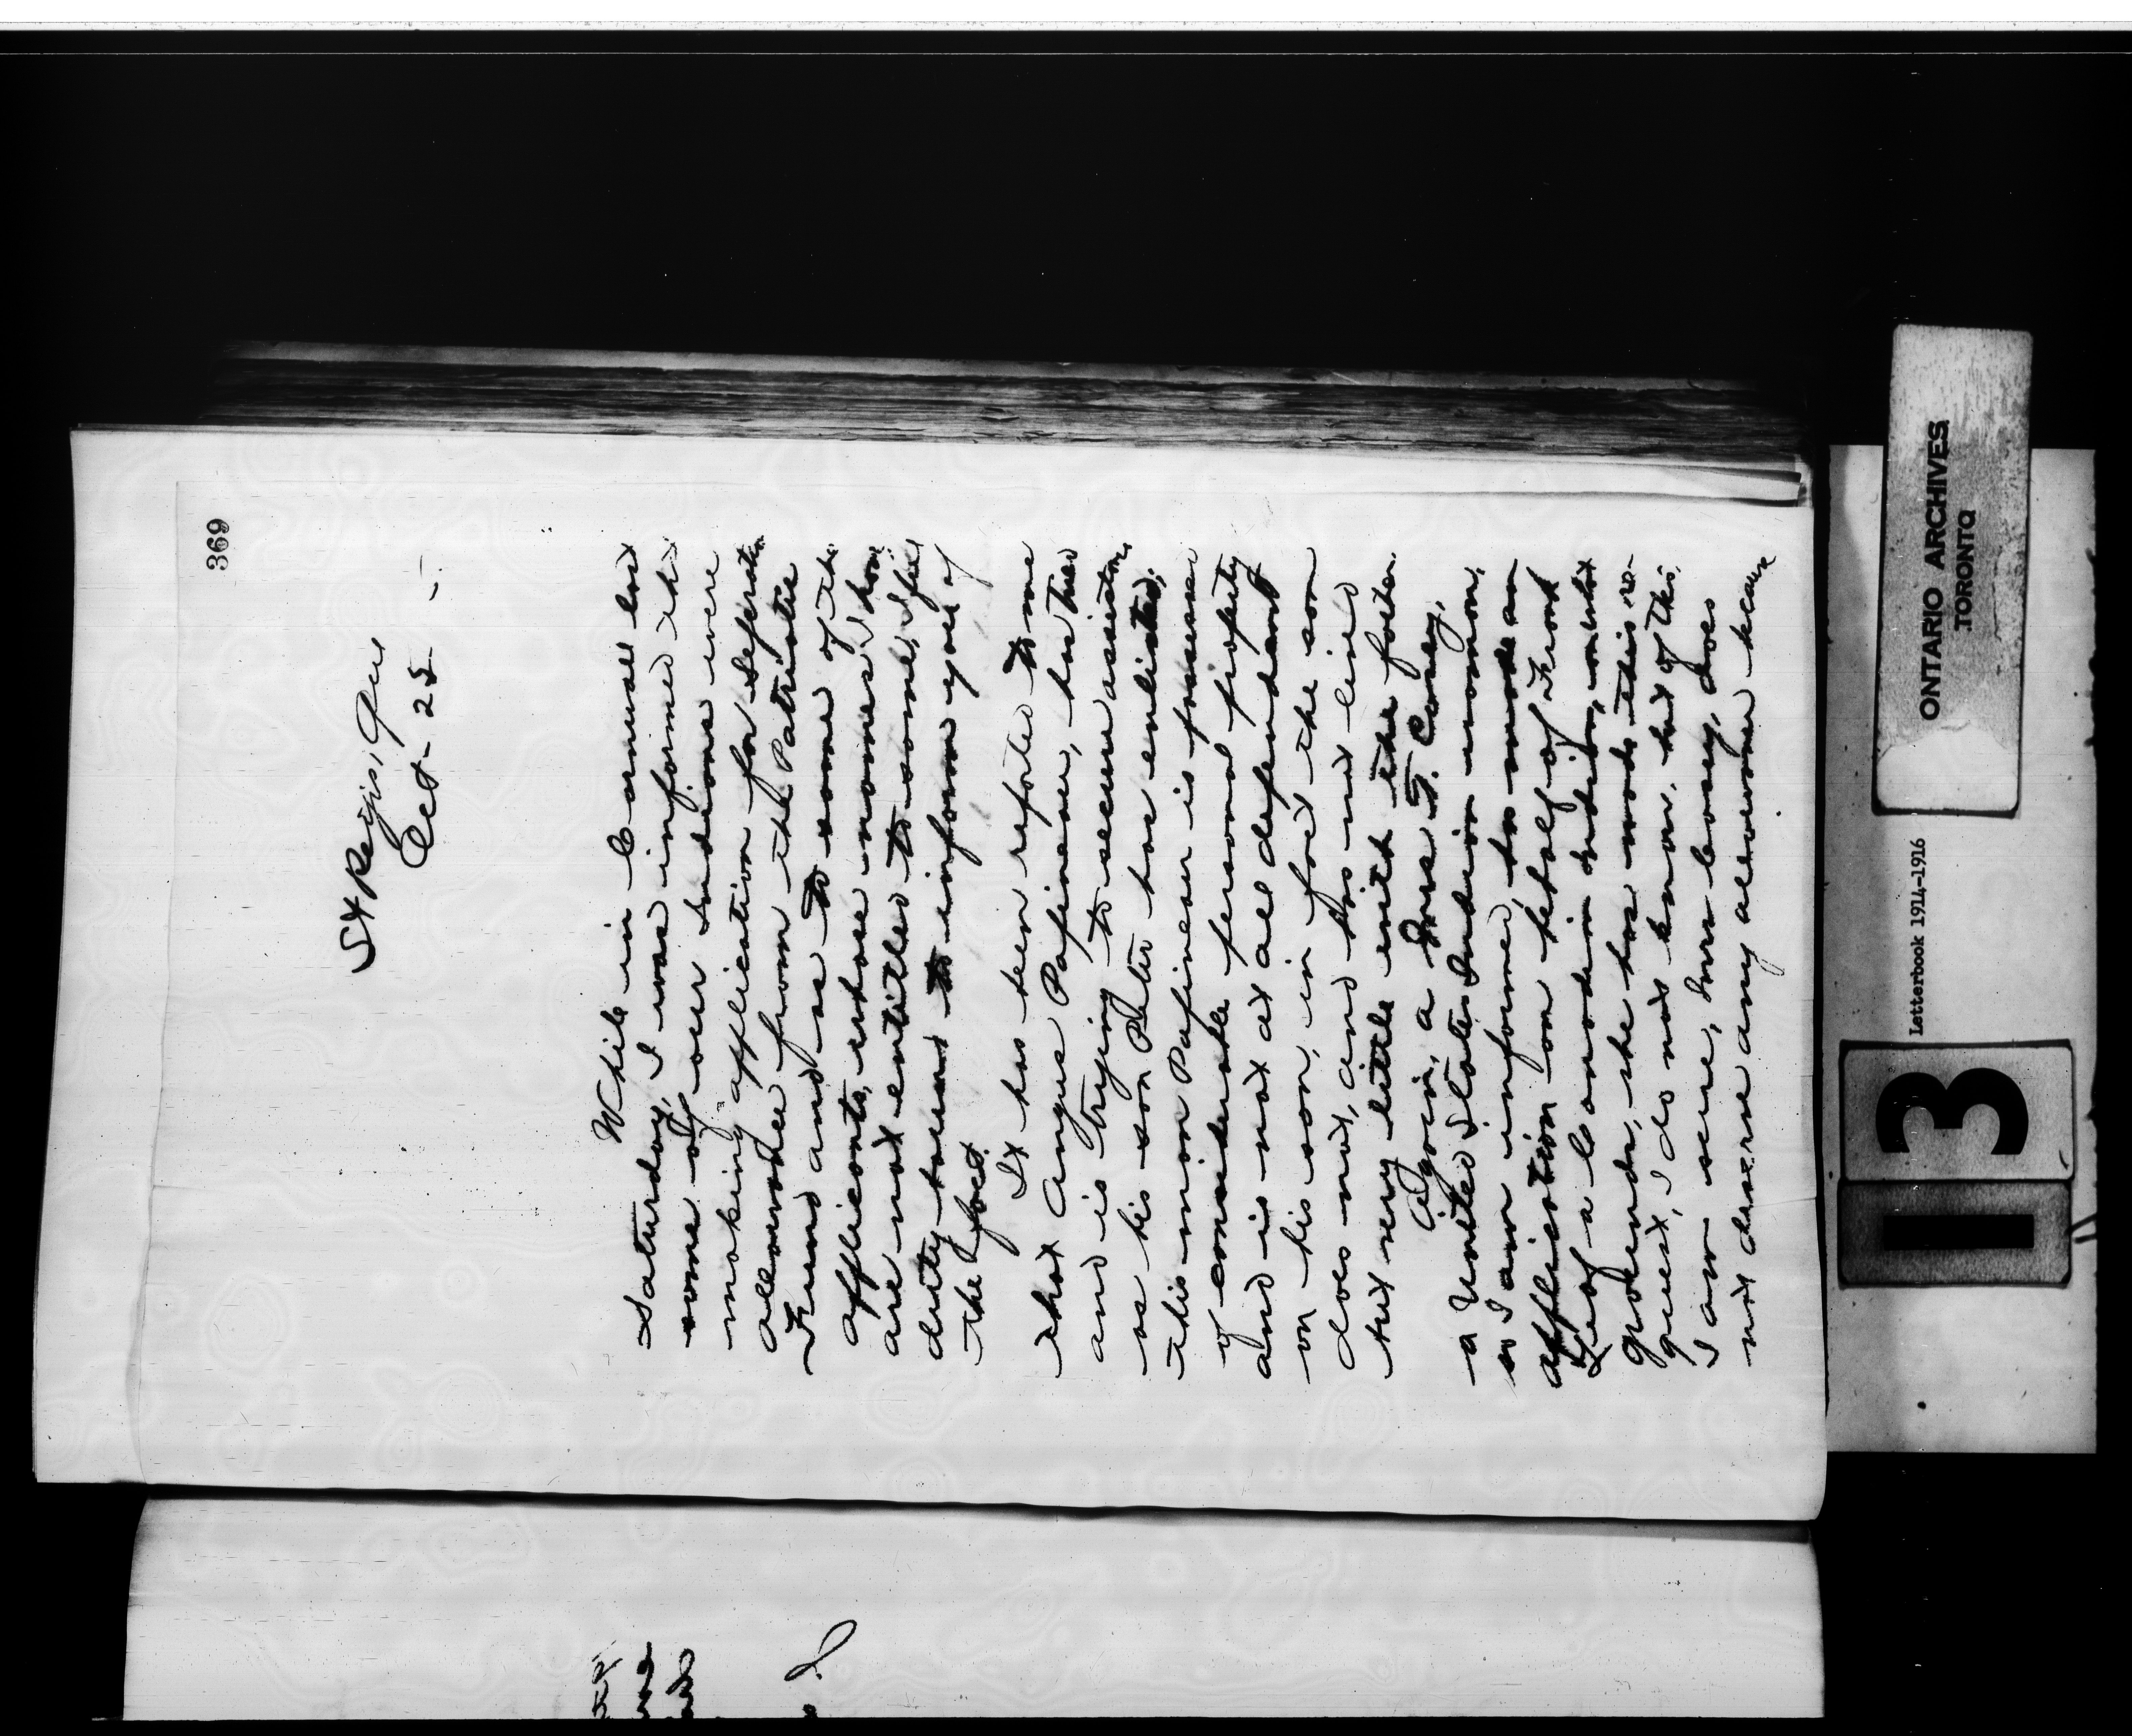 369
St Regis, Que
Oct - 25 -
While in Cornwall last
Saturday, I was informed that
some of our Indians were
making application for Separation
allowance from the Patriotic
Fund and as to some of the
applicants, whose names I have
are not entitled to same, I feel
duty bound to inform you of
the fact.
It has been reported to me
that Angus Papineau, has tried
and is trying to secure assistance
as his son Peter has enlisted;
this man Papineau is possessed
of considerable personal property
and is not at all dependant
on his son, in fact the son
does not, and has not lived
but very little with the father.
Again, a Mrs F. Cooey,
a United States Indian woman,
so I am informed, has made an
application on behalf of Frank
Leaf a Canadian Indian, on what
grounds, she has made this re-
quest, I do not know, but of this,
I am sure, Mrs Cooey, does
not deserve any allowance because
ONTARIO ARCHIVES
TORONTO
Letterbook 1914-1916
13